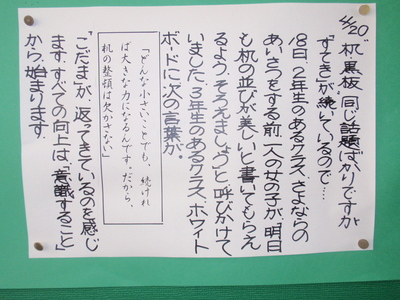 4/20 "机、黒板"同じ話題ばかりですが
「すてき」が続いているので…
18日、2年生のあるクラス、さよならの
あいさつをする前、一人の女の子が、「明日
も机の並びが美しいと書いてもらえ
るよう、そろえましょう」と呼びかけて
いました。3年生のあるクラス、ホワイト
ボードに次の言葉が。
「どんな小さいことでも、続けれ
ば大きな力になるんです。だから、
机の整頓は欠かさない」
"こだま"が、返ってきているのを感じ
ます。すべての向上は「意識すること」
から、始まります。